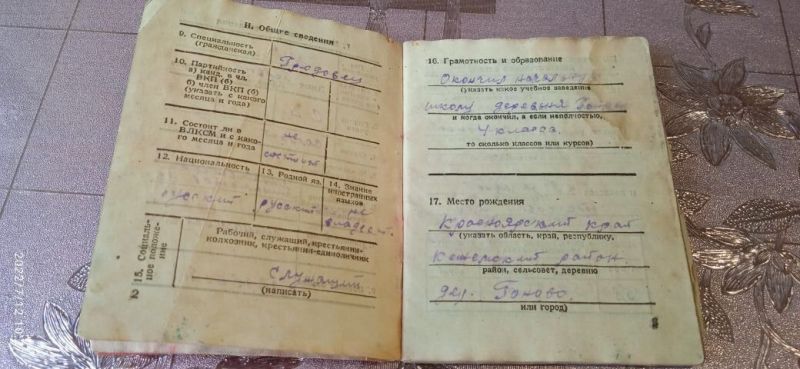 II. Общие сведения
9. Специальность
(гражданская)
Продавец
10. Партийность
а) канд. в чл.
ВКП (б)
б) член ВКП (б)
(указать с какого
месяца и года)
11. Состоит ли в
ВЛКСМ и с како-
го месяца и года
не
состоит
12. Национальность
русский
13. Родной яз.
русский
14. Знание
иностранных
языков
не
владеет
15. Социаль-
ное положе-
ние
Рабочий, служащий, крестьянин-
колхозник, крестьянин-единоличник
Служащий
(написать)
16. Грамотность и образование
Окончил
(указать какое учебное заведение
школу деревня
и когда окончил, а если неполностью,
4 класса
то сколько классов или курсов)
17. Место рождения
Красноярский край
(указать область, край, республику,
район
район, сельсовет, деревню
дер.
или город)
2022/7/12 10